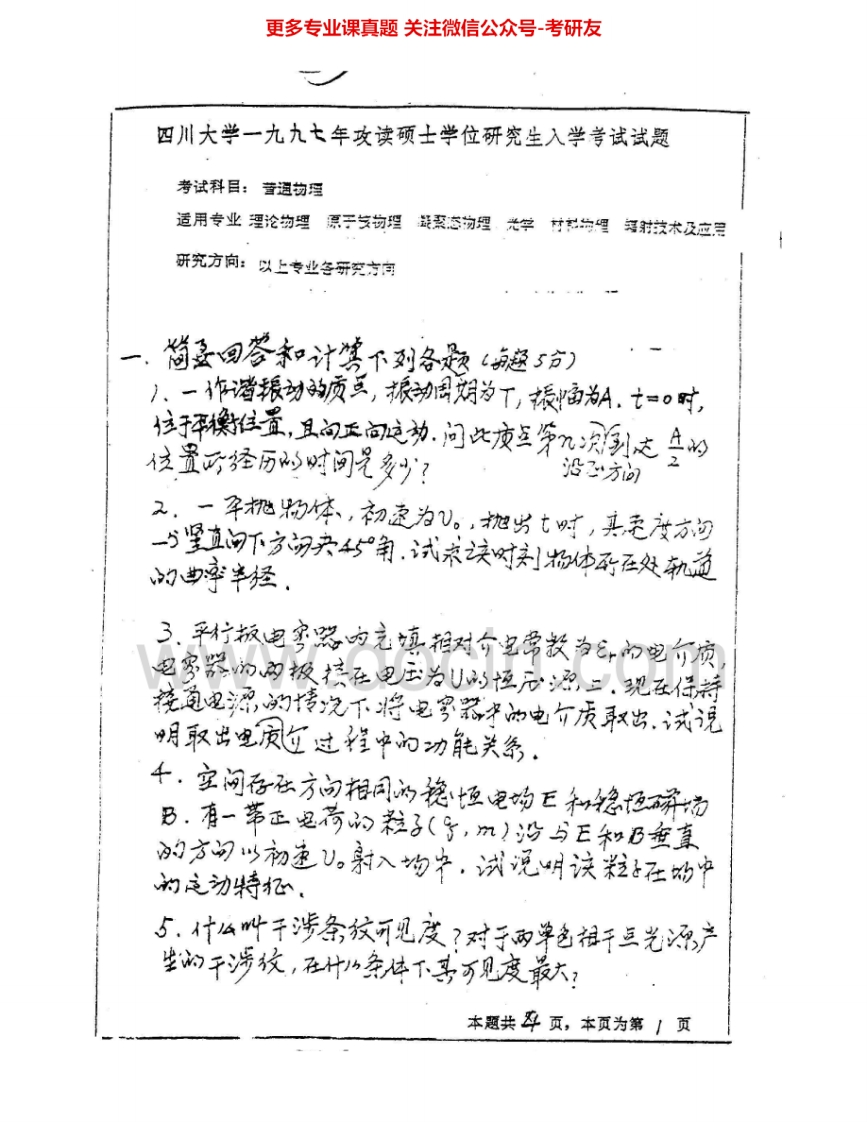 更多专业课真题 关注微信公众号-考研友
四川大学一九九七年攻读硕士学位研究生入学考试试题
考试科目：普通物理
适用专业 理论物理 原子核物理 凝聚态物理 光学 材料物理 辐射技术及应用
研究方向：以上专业各研究方向
一、简要回答和计算下列各题（每题5分）
1、一作谐振动的质点，振动周期为T，振幅为A．t=0时，
位于平衡位置，且向正向运动．问此质点第n次到达 A/2 的
沿正方向
位置所经历的时间是多少？
2、一平抛物体，初速为υ₀，抛出t时，其速度方向
与竖直向下方向夹45°角．试求该时刻物体所在处轨道
的曲率半径．
3、平行板电容器内充填相对介电常数为εr的电介质，
电容器的两板接在电压为U的恒压源上．现在保持
接通电源的情况下将电容器中的电介质取出．试说
明取出电质介过程中的功能关系．
4．空间存在方向相同的稳恒电场E和稳恒磁场
B．有一带正电荷的粒子(q,m)沿与E和B垂直
的方向以初速υ₀射入场中．试说明该粒子在场中
的运动特征．
5．什么叫干涉条纹可见度？对于两单色相干点光源产
生的干涉纹，在什么条件下其可见度最大？
本题共 4 页，本页为第 1 页
www.docin.com